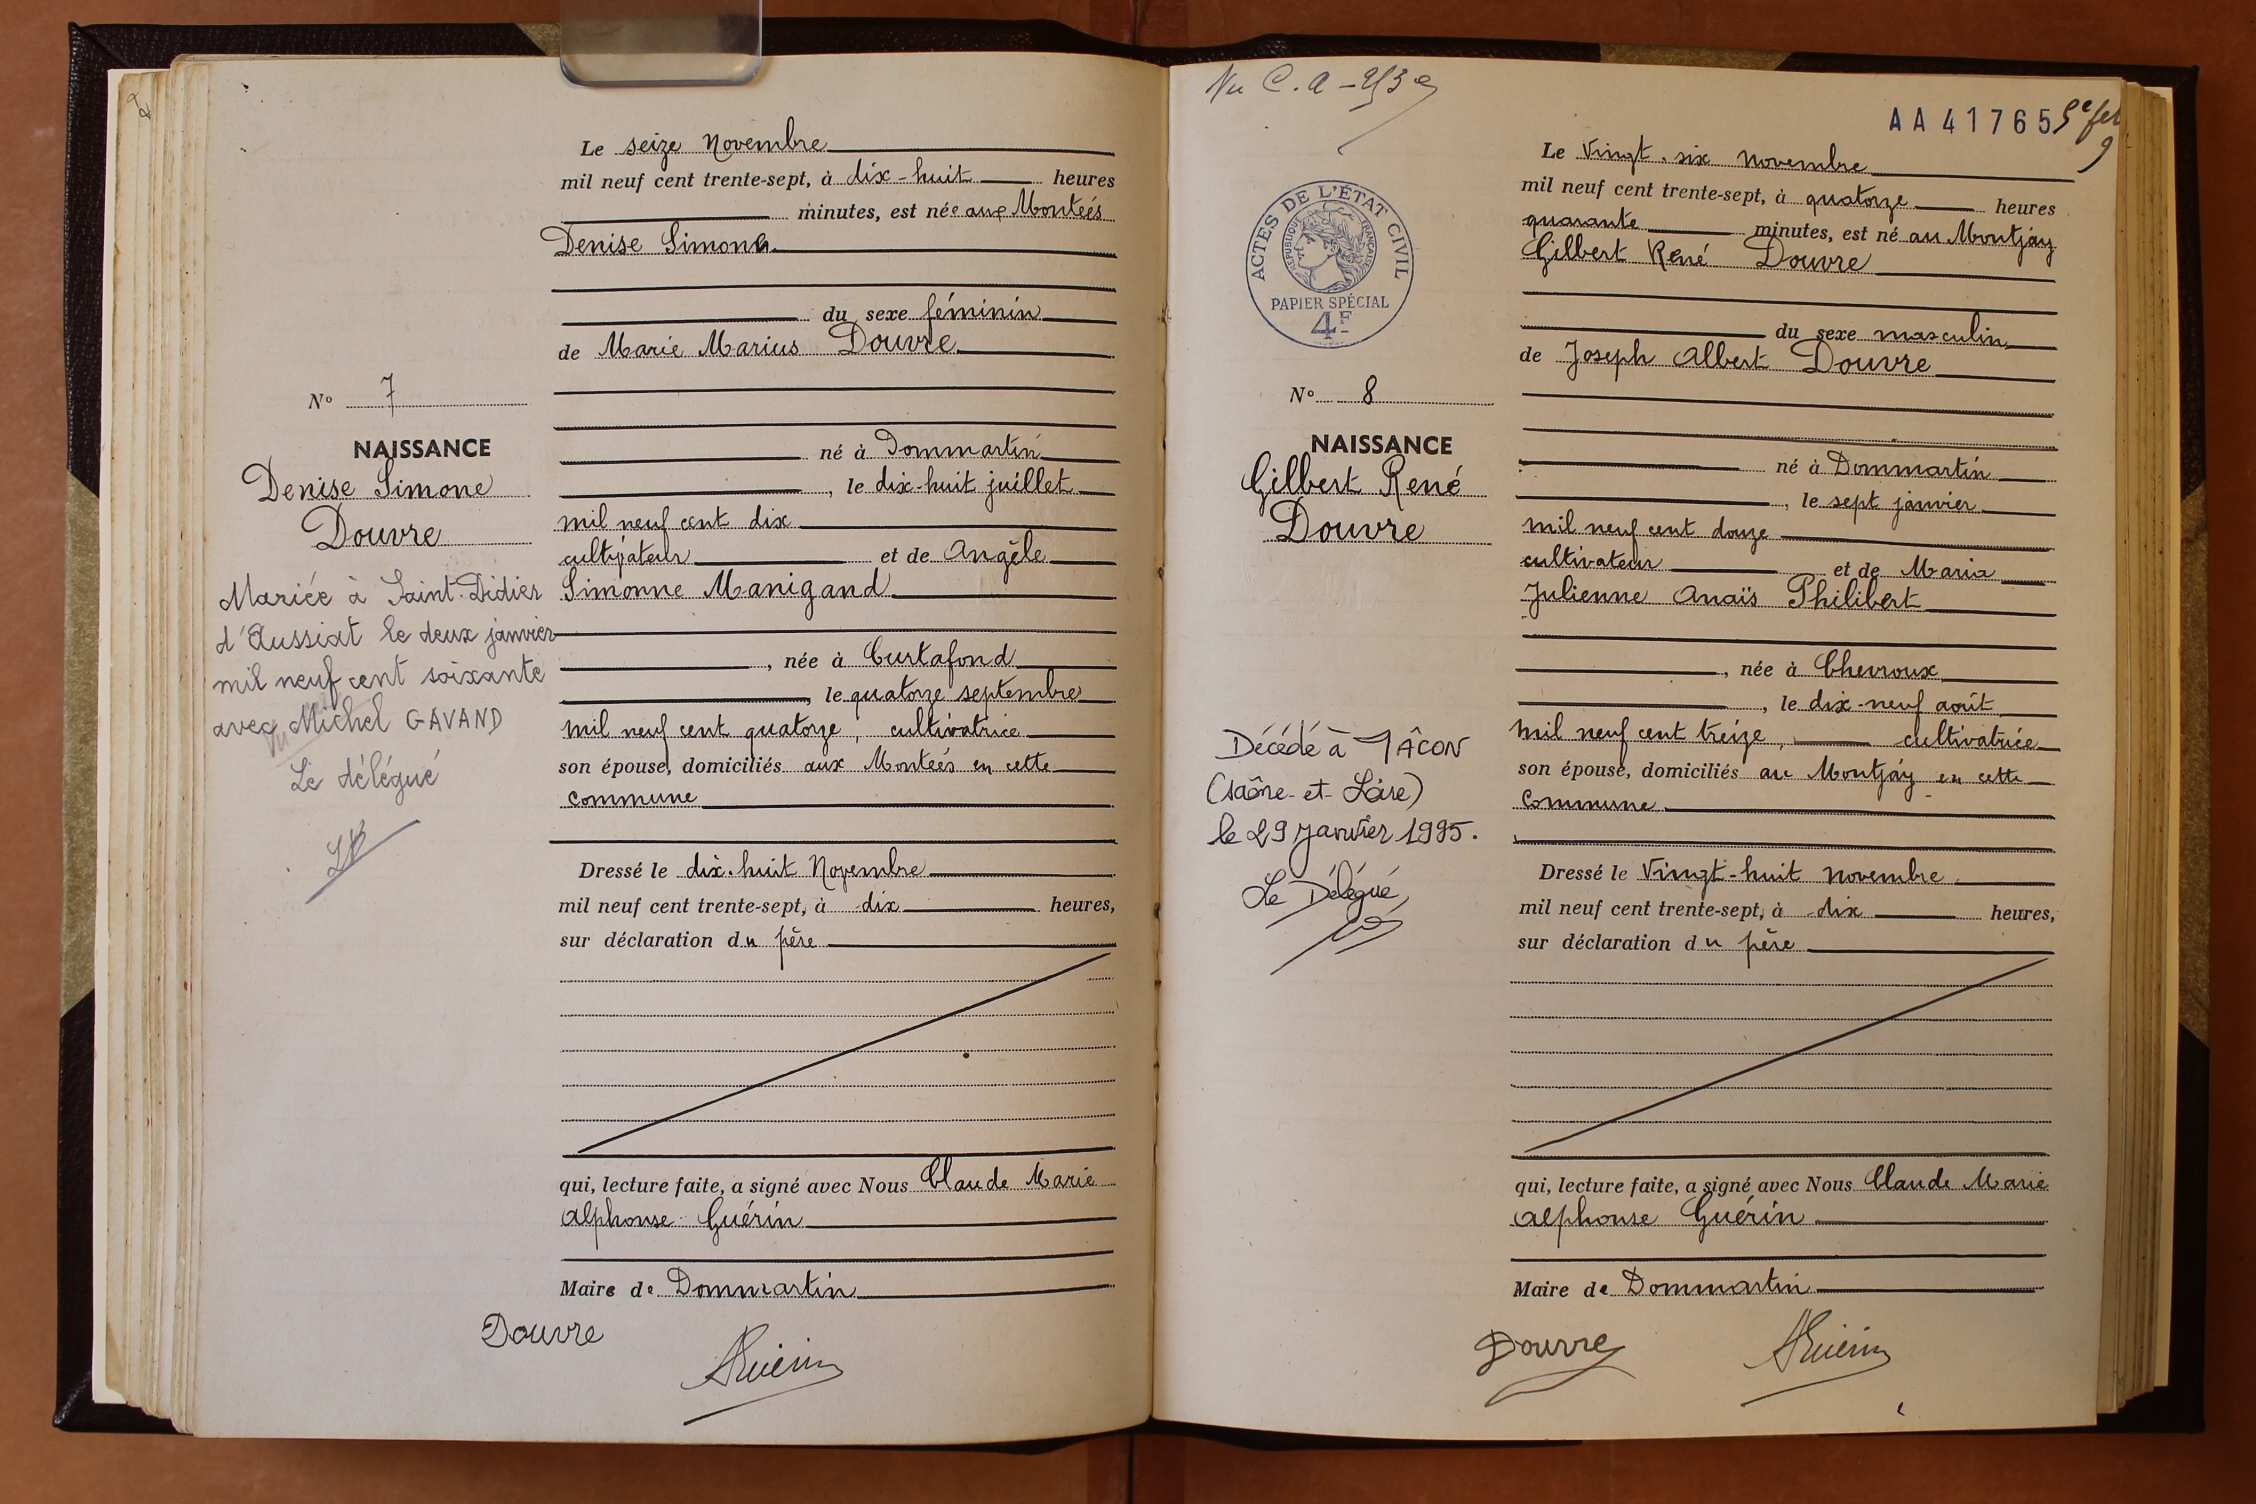 Le seize Novembre
mil neuf cent trente-sept, à dix-huit heures
minutes, est née aux Monteés
Denise Simone
du sexe féminin
de Marie Marius Douvre
né à Dommartin
, le dix-huit juillet
mil neuf cent dix
cultivateur et de Angèle
Simonne Manigand
, née à Curtafond
, le quatorze septembre
mil neuf cent quatorze, cultivatrice
son épouse, domiciliés aux Monteés en cette
commune
Dressé le dix-huit Novembre
mil neuf cent trente-sept, à dix heures,
sur déclaration du père
qui, lecture faite, a signé avec Nous Claude Marie
Alphonse Guérin
Maire de Dommartin
Douvre
AGuérin
No 7
NAISSANCE
Denise Simone
Douvre
Mariée à Saint-Didier
d'Aussiat le deux janvier
mil neuf cent soixante
avec Michel GAVAND
Le délégué
AA 41765
5e fet
9
Le Vingt-six novembre
mil neuf cent trente-sept, à quatorze heures
quarante minutes, est né au Montjay
Gilbert René Douvre
du sexe masculin
de Joseph Albert Douvre
né à Dommartin
, le sept janvier
mil neuf cent douze
cultivateur et de Maria
Julienne Anaïs Philibert
, née à Chevroux
, le dix-neuf août
mil neuf cent treize, cultivatrice
son épouse, domiciliés au Montjay en cette
commune
Dressé le Vingt-huit novembre
mil neuf cent trente-sept, à dix heures,
sur déclaration du père
qui, lecture faite, a signé avec Nous Claude Marie
Alphonse Guérin
Maire de Dommartin
Douvre
AGuérin
ACTES DE L'ÉTAT CIVIL
RÉPUBLIQUE FRANÇAISE
PAPIER SPÉCIAL
4F
No 8
NAISSANCE
Gilbert René
Douvre
Décédé à MÂCON
(Saône-et-Loire)
le 29 Janvier 1995.
Le Délégué,